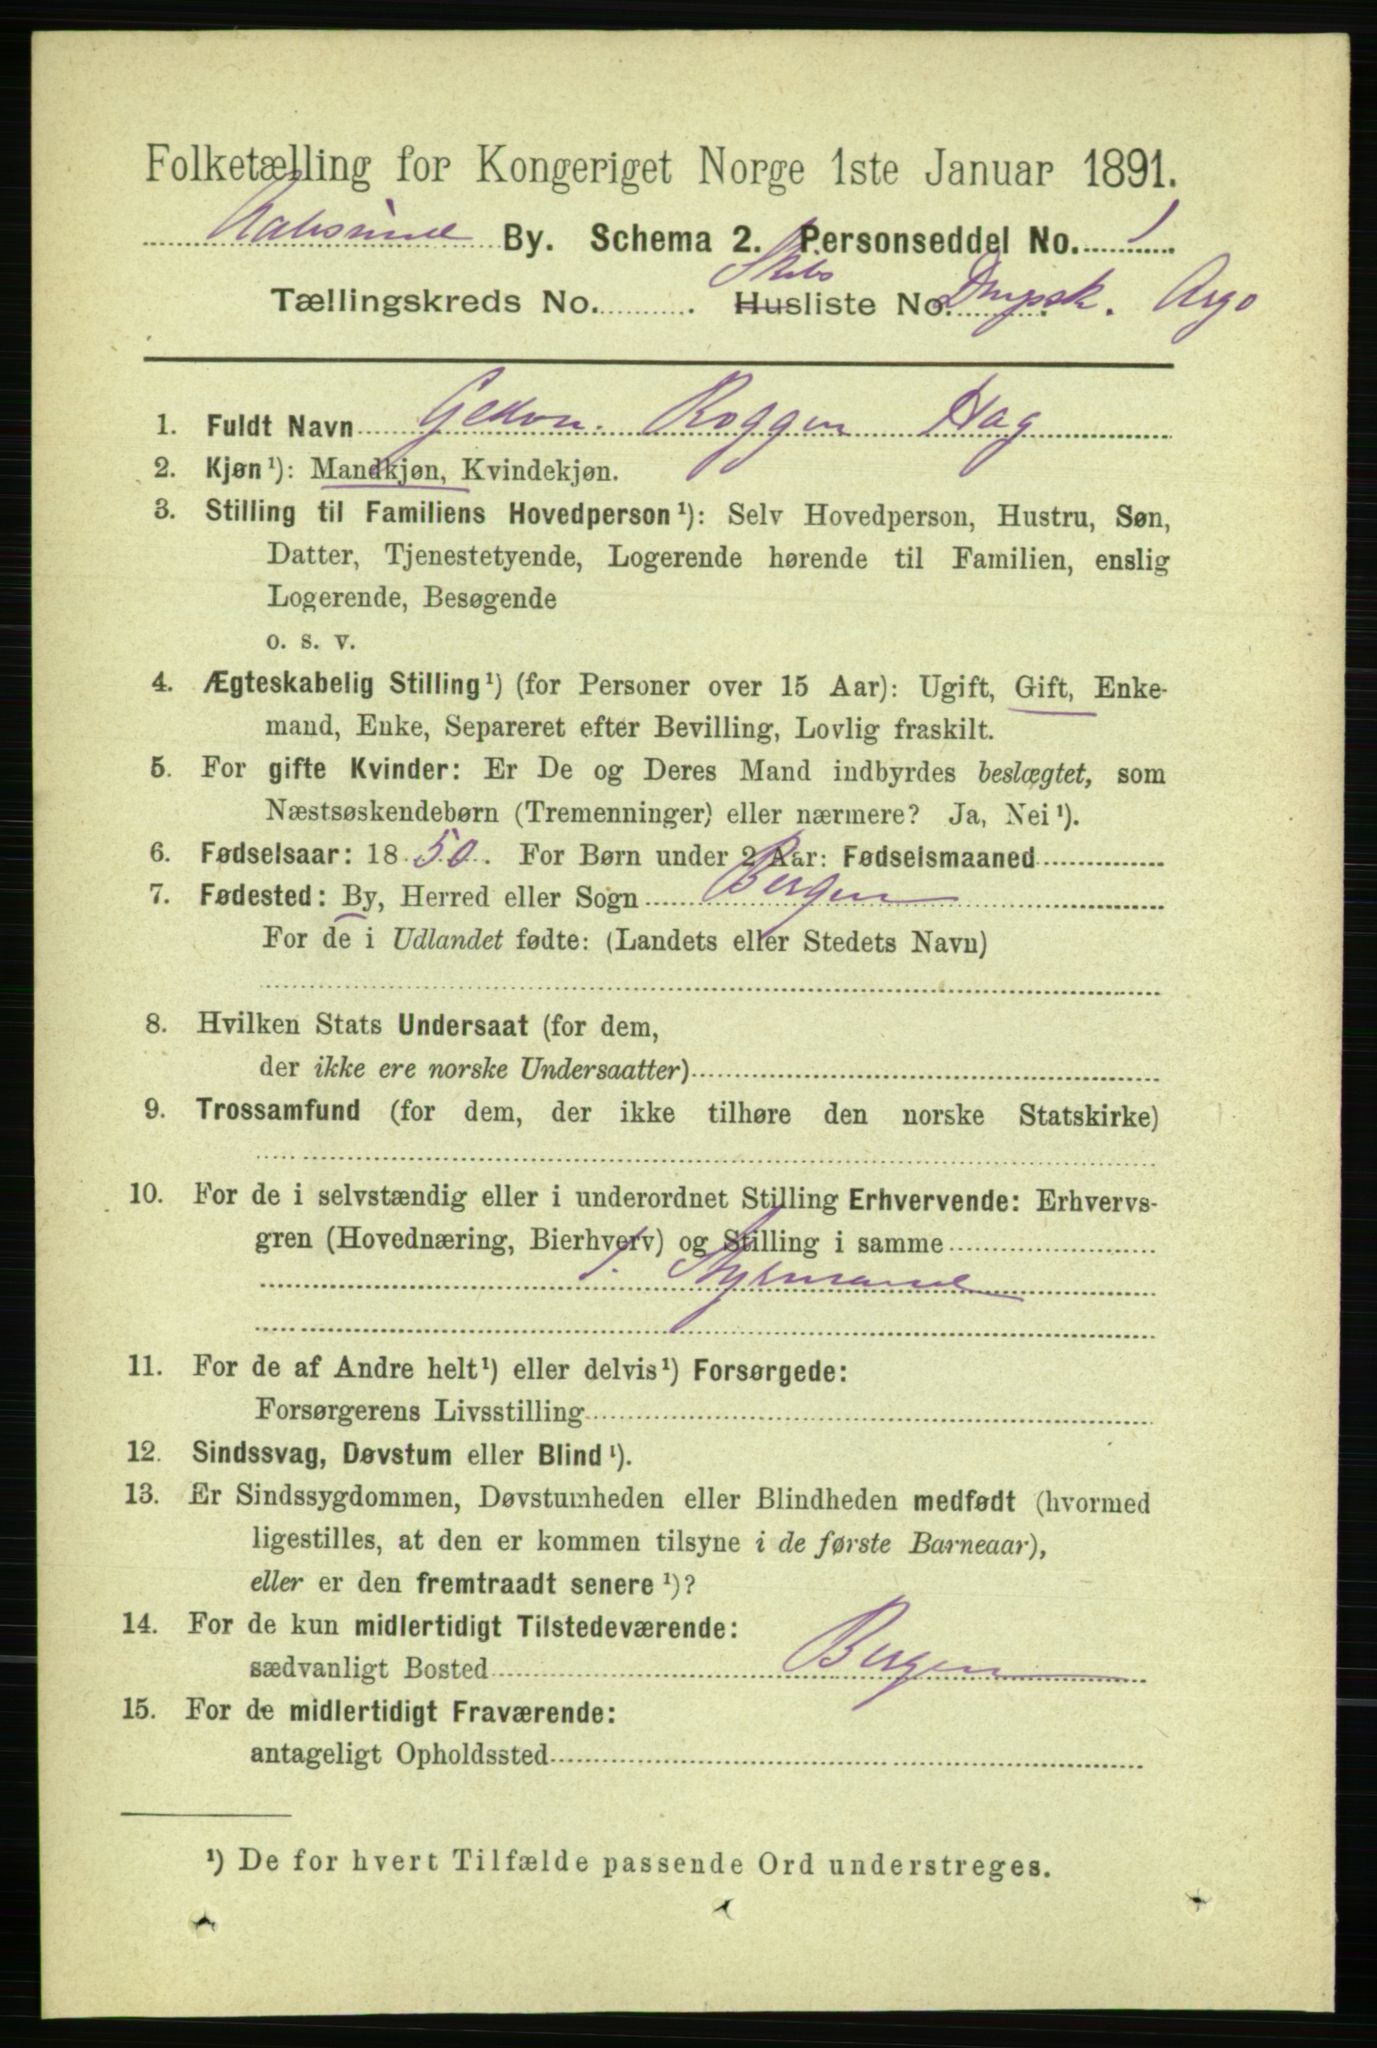 Folketælling for Kongeriget Norge 1ste Januar 1891.
Aalesund By. Schema 2. Personseddel No. 1
Tællingskreds No. . Skibsliste No. Dmpsk. Argo
1. Fuldt Navn Roggen Hag
2. Kjøn¹): Mandkjøn, Kvindekjøn.
3. Stilling til Familiens Hovedperson¹): Selv Hovedperson, Hustru, Søn,
Datter, Tjenestetyende, Logerende hørende til Familien, enslig
Logerende, Besøgende
o. s. v.
4. Ægteskabelig Stilling¹) (for Personer over 15 Aar): Ugift, Gift, Enke-
mand, Enke, Separeret efter Bevilling, Lovlig fraskilt.
5. For gifte Kvinder: Er De og Deres Mand indbyrdes beslægtet, som
Næstsøskendebørn (Tremenninger) eller nærmere? Ja, Nei¹).
6. Fødselsaar: 1850. For Børn under 2 Aar: Fødselsmaaned
7. Fødested: By, Herred eller Sogn Bergen
For de i Udlandet fødte: (Landets eller Stedets Navn)
8. Hvilken Stats Undersaat (for dem,
der ikke ere norske Undersaatter)
9. Trossamfund (for dem, der ikke tilhøre den norske Statskirke)
10. For de i selvstændig eller i underordnet Stilling Erhvervende: Erhvervs-
gren (Hovednæring, Bierhverv) og Stilling i samme
1. Styrmand
11. For de af Andre helt¹) eller delvis¹) Forsørgede:
Forsørgerens Livsstilling
12. Sindssvag, Døvstum eller Blind¹).
13. Er Sindssygdommen, Døvstumheden eller Blindheden medfødt (hvormed
ligestilles, at den er kommen tilsyne i de første Barneaar),
eller er den fremtraadt senere¹)?
14. For de kun midlertidigt Tilstedeværende:
sædvanligt Bosted Bergen
15. For de midlertidigt Fraværende:
antageligt Opholdssted
¹) De for hvert Tilfælde passende Ord understreges.